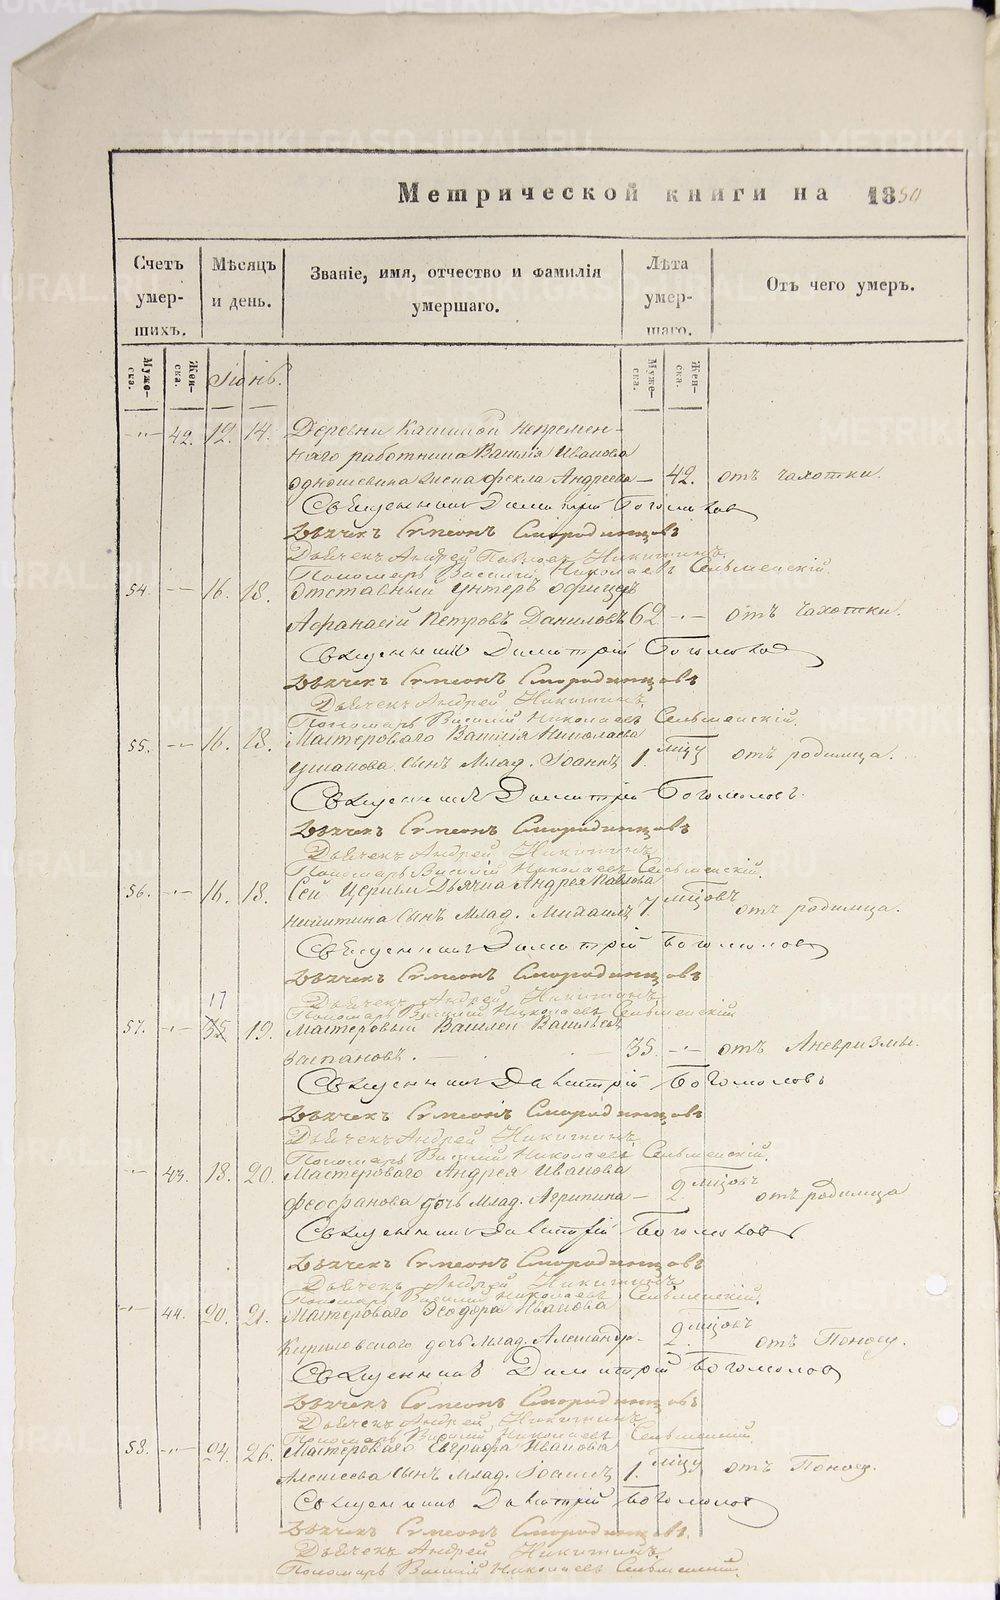 METRIKI.GASO-URAL.RU
Метрической книги на 1850
Счетъ умершихъ.
Мѣсяцъ и день.
Званіе, имя, отчество и фамилія умершаго.
Лѣта умершаго.
Отъ чего умеръ.
Мужеска. Женска. Іюнь. Мужеска. Женска.
42. 12. 14. Деревни непремен-
наго работника Василія Иванова
жена Фекла Андреева — 42. отъ чахотки.
Священникъ Димитрій Богомоловъ
Дьячекъ Симеонъ Смородинцовъ
Дьячекъ Андрей Павловъ Никитинъ
Пономарь Василій Николаевъ Сельменскій.
54. 16. 18. Отставный Унтеръ Офицеръ
Афанасій Петровъ Даниловъ 62 отъ чахотки.
Священникъ Димитрій Богомоловъ
Дьячекъ Симеонъ Смородинцовъ
Дьячекъ Андрей Никитинъ
Пономарь Василій Николаевъ Сельменскій.
55. 16. 18. Мастероваго Василія Николаева
Ушакова сынъ млад. Іоаннъ 1. мцу отъ родимца.
Священникъ Димитрій Богомоловъ
Дьячекъ Симеонъ Смородинцовъ
Дьячекъ Андрей Никитинъ
Пономарь Василій Николаевъ Сельменскій.
56. 16. 18. Сей Церкви Дьячка Андрея Павлова
Никитина сынъ млад. Михаилъ 7. мцовъ отъ родимца.
Священникъ Димитрій Богомоловъ
Дьячекъ Симеонъ Смородинцовъ
Дьячекъ Андрей Никитинъ
Пономарь Василій Николаевъ Сельменскій
17
57. 35 19. Мастеровый Василей Васильевъ
35. отъ Аневризмы.
Священникъ Димитрій Богомоловъ
Дьячекъ Симеонъ Смородинцовъ
Дьячекъ Андрей Никитинъ
Пономарь Василій Николаевъ Сельменскій.
43. 18. 20. Мастероваго Андрея Иванова
Феофанова дочь млад. Агрипина — 2 мцовъ отъ родимца
Священникъ Димитрій Богомоловъ
Дьячекъ Симеонъ Смородинцовъ
Дьячекъ Андрей Никитинъ
Пономарь Василій Николаевъ Сельменскій.
44. 20. 21. Мастероваго Ѳеодора Иванова
Кириловскаго дочь млад. 2 мцовъ отъ Поносу.
Священникъ Димитрій Богомоловъ
Дьячекъ Симеонъ Смородинцовъ
Дьячекъ Андрей Никитинъ
Пономарь Василій Николаевъ Сельменскій.
58. 24. 26. Мастероваго Евграфа Иванова
Алексеева сынъ млад. Іоаннъ 1. мцу отъ Поносу.
Священникъ Димитрій Богомоловъ
Дьячекъ Симеонъ Смородинцовъ.
Дьячекъ Андрей Никитинъ.
Пономарь Василій Николаевъ Сельменскій.